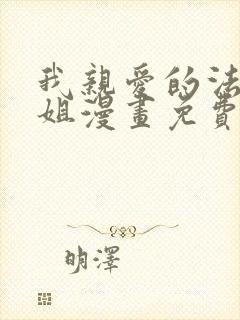 我親愛的法
姐漫畫免費
明澤